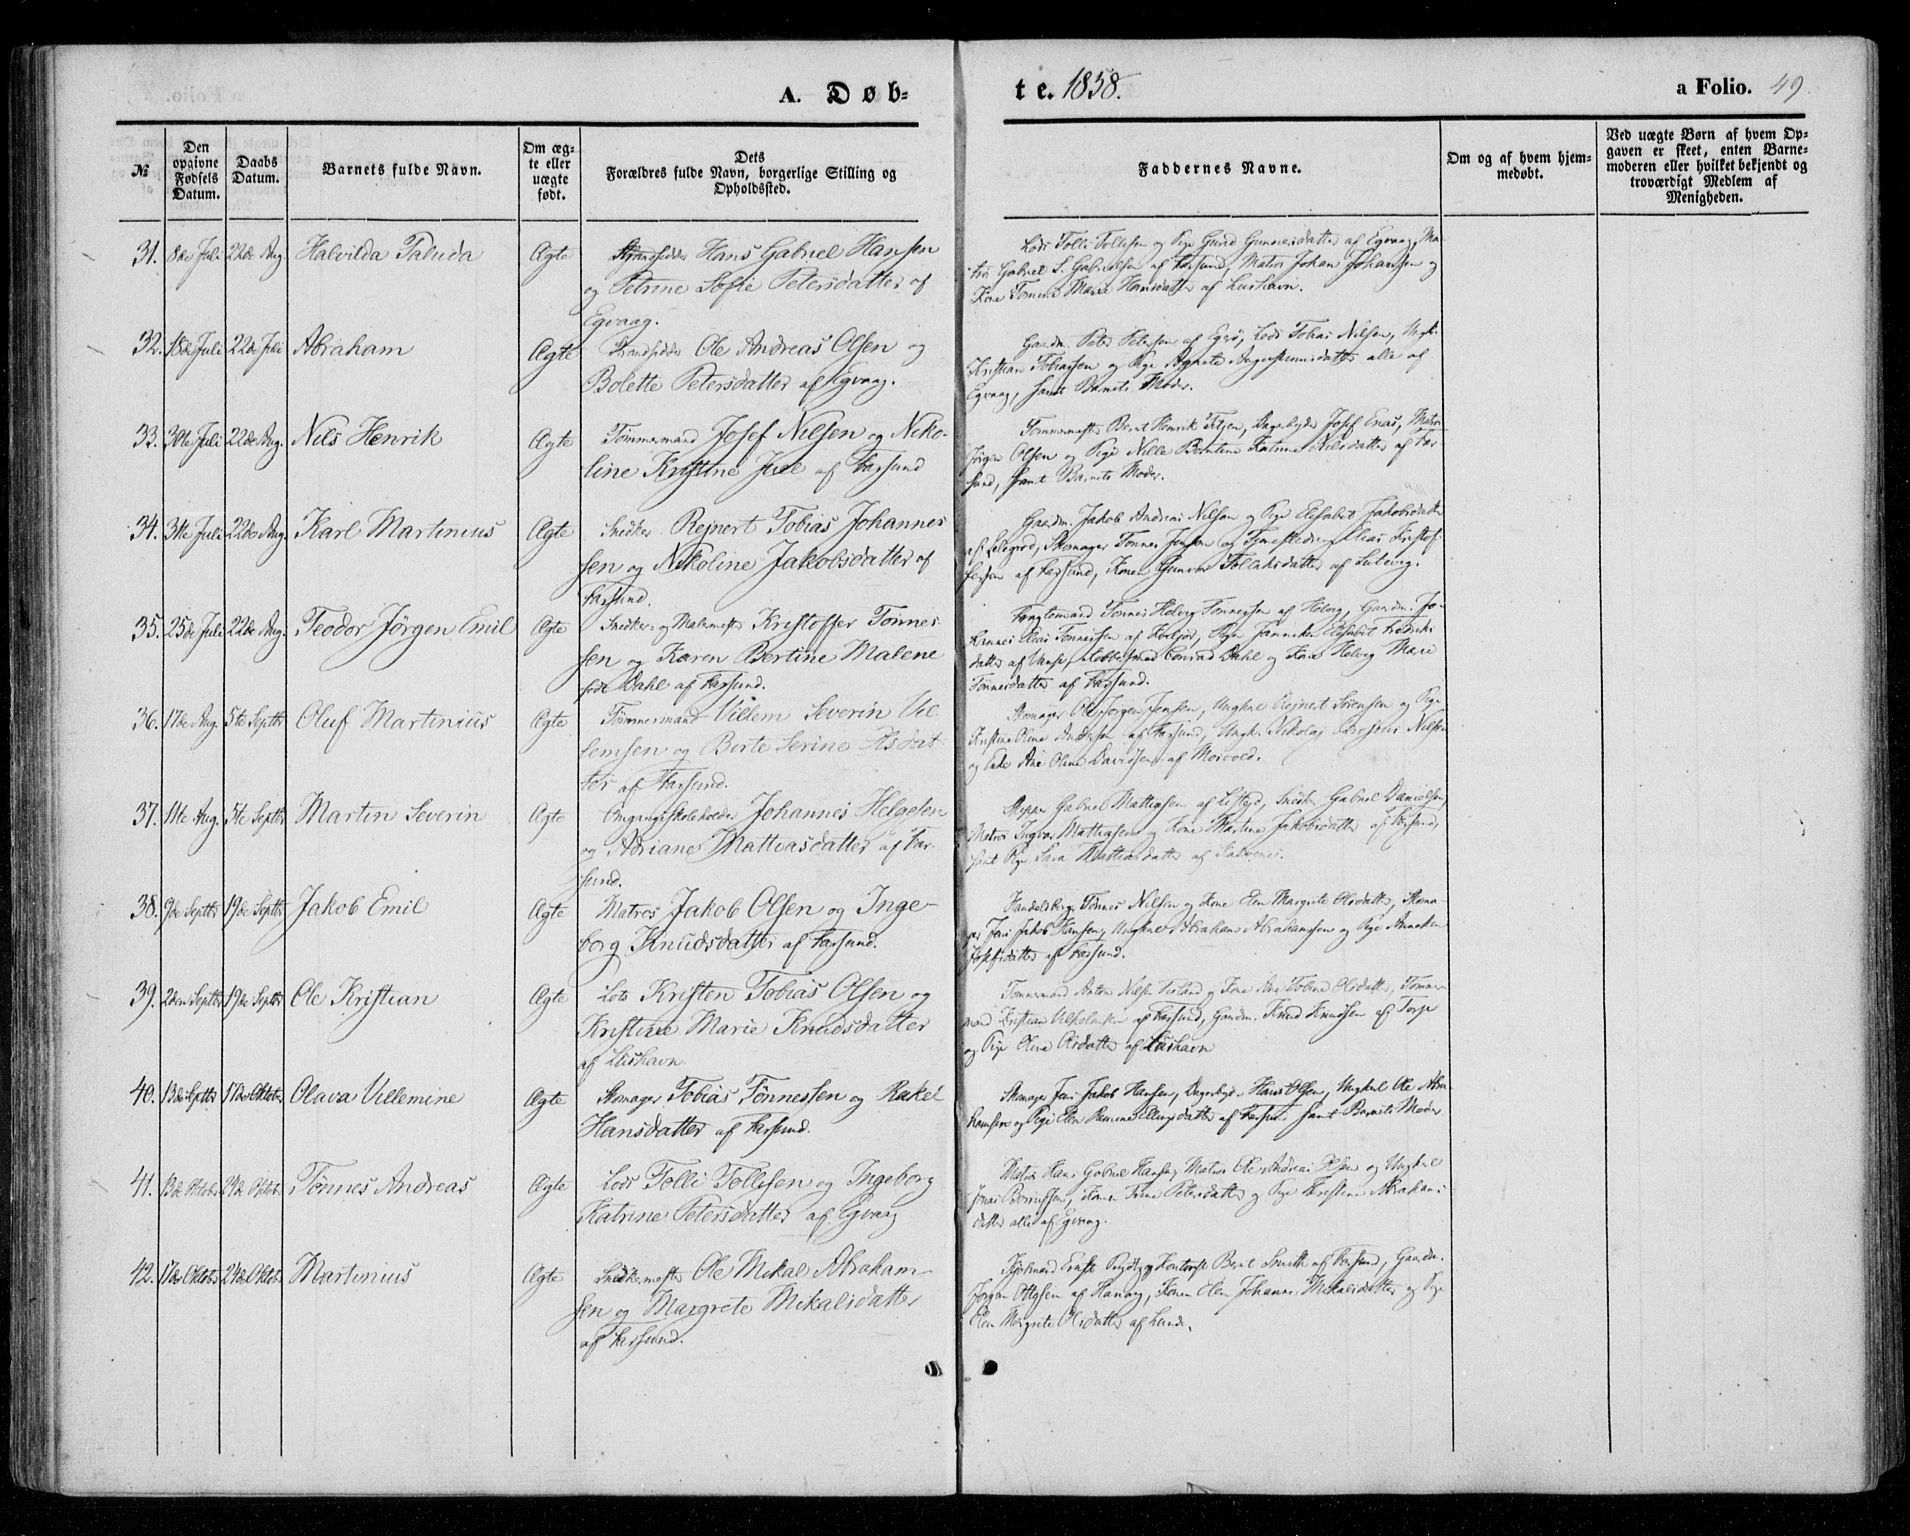 A. Døb-
te. 1858.
a Folio. 49.
№
Den opgivne Fødsels Datum.
Daabs Datum.
Barnets fulde Navn.
Om ægte eller uægte født.
Dets
Forældres fulde Navn, borgerlige Stilling og
Opholdssted.
Faddernes Navne.
Om og af hvem hjem-
medøbt.
Ved uægte Børn af hvem Op-
gaven er skeet, enten Barne-
moderen eller hvilket bekjendt og
troværdigt Medlem af
Menigheden.
31. 8de Juli 22de Aug. Halvilda Taluda Ægte Strandsidder Hans Gabriel Hansen
og Petrine Sofie Petersdatter af
Egvaag.
Lods Tolli Tollisen og Pige Gurid Gunnersdatter af Egvaag, Ma-
tros Gabriel S. Gabrielsen af Farsund, Matros Johan Johannsen og
Kone Tomine Marie Hansdatter af Lushavn.
32. 18de Juli 22de Juli Abraham Ægte Strandsidder Ole Andreas Olsen og
Bolette Petersdatter af Egvaag.
Gaardm. Peter Petersen af Egvaag, Lods Tobias Nilsen, Ungk.
Kristian Tobiassen og Pige Agnete Augustinusdatter alle af
Egvaag, samt Barnets Moder.
33. 30te Juli 22de Aug. Nils Henrik Ægte Tømmermand Josef Nilsen og Niko-
line Kristine Juel af Farsund
Tømmermester Bernt Henrik Jensen, Bagerbyder Josef Enas, Matros
Jørgen Olsen og Pige Nille Berntine Katrine Nilsdatter af Far-
sund, samt Barnets Moder.
34. 31te Juli 22de Aug. Karl Martinius Ægte Snedker Rejnert Tobias Johannes-
sen og Nikoline Jakobsdatter af
Farsund.
Gaardm. Jakob Andreas Nilsen og Pige Elisabet Jakobsdatter
af Lolegrød, Skomager Tønnes Jensen og Elias Kristof-
fersen af Farsund, Konen Gunvor Tollaksdatter af Lutevig.
35. 25de Juli 22de Aug. Teodor Jörgen Emil Ægte Snedker- og Malermester Kristoffer Tønnes-
sen og Karen Bertine Malene
født Dahl af Farsund.
Tønnes Helvig Tønnessen af Helvig, Gaardm. Jo-
hannes Elias Tønnessen af Pige Janniken Elisabet Fredriks-
datter af Vanse, Kobbersmed Conrad Dahl og Kone Helvig Marie
Tønnesdatter af Farsund.
36. 17de Aug. 5te Septbr Oluf Martinius Ægte Tømmermand Villem Severin Vil-
lemsen og Berte Serine Elsdat-
ter af Farsund.
Skomager Ole Jørgen Jensen, Ungkarl Rejnert Sørensen og Pige
Kristine Oline Andersen af Farsund, Ungk. Nikolaj Nilsen
og Enke Ane Oline Davidsen af Mosvold.
37. 11te Aug. 5te Septbr Martin Severin Ægte Omgangsskoleholder Johannes Helgesen
og Adriane Mattiasdatter af Far-
sund.
Skipper Gabriel Mattiasen af Snedker Gabriel Danielsen,
Matros Ingvar Mattiasen og Kone Martine Jakobsdatter af Farsund,
samt Pige Sara Mattiasdatter af
38. 9de Septbr 19de Septbr Jakob Emil Ægte Matros Jakob Olsen og Inge-
borg Knudsdatter af Farsund.
Handelsborger Tønnes Nilsen og Kone Elen Margrete Olsdatter, Skoma-
ger Jens Jakob Hansen, Ungkarl Abraham Abrahamsen og Pige Anneken
Josefsdatter af Farsund.
39. 2den Septbr 19de Septbr Ole Kristian Ægte Lods Kristen Tobias Olsen og
Kristine Marie Knudsdatter
af Lushavn
Tømmermand Anton Nilsen og Kone Ane Tobine Olsdatter, Tømmer-
mand Kristian Vilhelmsen af Farsund, Gaardm. Knud Knudsen af Torp
og Pige Oline Olsdatter af Lushavn
40. 13de Septbr 17de Oktobr Olava Villemine Ægte Skomager Tobias Tønnessen og Rakel
Hansdatter af Farsund.
Skomager Jens Jakob Hansen, Dagarbejder Hans Olsen, Ungkarl Ole Abra-
hamsen og Pige Elen datter af Farsund samt Barnets Moder
41. 13de Oktobr. 24de Oktobr. Tönnes Andreas Ægte Lods Tolli Tollisen og Ingeborg
Katrine Petersdatter af Egvaag
Matros Hans Gabriel Hansen, Matros Ole Andreas Olsen og Ungkarl
Jonas Berntsen, Konen Trine Petersdatter og Pige Kristine Abrahams-
datter alle af Egvaag.
42. 17de Oktobr. 24de Oktobr. Martinius Ægte Snedkermester Ole Mikal Abraham-
sen og Margrete Mikalsdatter
af Farsund.
Ernst og Kontorist Bernt Smith af Farsund, Gaardm.
Jørgen Ottesen af Hanaug, Konen Elen Johanne Mikalsdatter og Pige
Elen Margrete Olsdatter af Lunde.